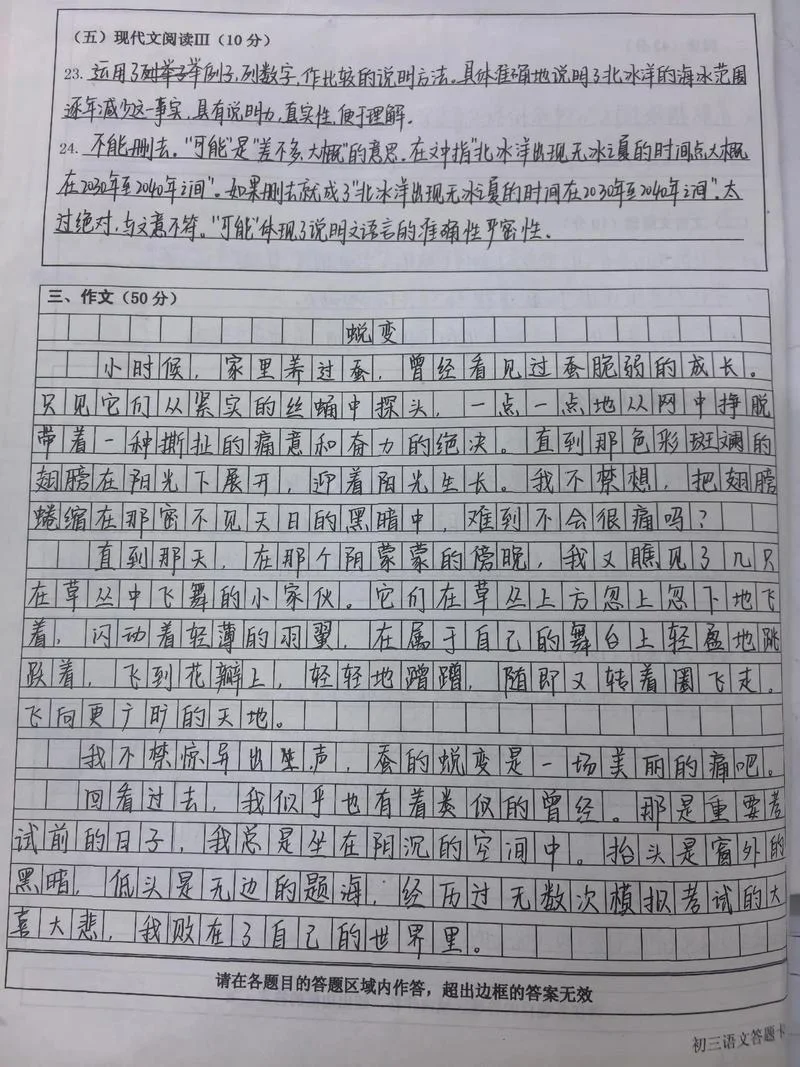 （五）现代文阅读Ⅲ（10分）
23. 运用了举例子，列数字，作比较的说明方法。具体准确地说明了北冰洋的海冰范围
逐年减少这一事实，具有说明力，真实性，便于理解。
24. 不能删去。“可能”是“差不多，大概”的意思。在文中指“北冰洋出现无冰之夏的时间点大概
在2030年至2040年之间”。如果删去就成了“北冰洋出现无冰之夏的时间在2030年至2040年之间”，太
过绝对，与文意不符。“可能”体现了说明文语言的准确性严密性。
三、作文（50分）
蜕变
小时候，家里养过蚕，曾经看见过蚕脆弱的成长。
只见它们从紧实的丝蛹中探头，一点一点地从网中挣脱
带着一种撕扯的痛意和奋力的绝决。直到那色彩斑斓的
翅膀在阳光下展开，迎着阳光生长。我不禁想，把翅膀
蜷缩在那密不见天日的黑暗中，难到不会很痛吗？
直到那天，在那个阴蒙蒙的傍晚，我又瞧见了几只
在草丛中飞舞的小家伙。它们在草丛上方忽上忽下地飞
着，闪动着轻薄的羽翼，在属于自己的舞台上轻盈地跳
跃着，飞到花瓣上，轻轻地蹭蹭，随即又转着圈飞走。
飞向更广旷的天地。
我不禁惊异出声，蚕的蜕变是一场美丽的痛吧。
回看过去，我似乎也有着类似的曾经。那是重要考
试前的日子，我总是坐在阴沉的空间中。抬头是窗外的
黑暗，低头是无边的题海，经历过无数次模拟考试的大
喜大悲，我败在了自己的世界里。
请在各题目的答题区域内作答，超出边框的答案无效
初三语文答题卡